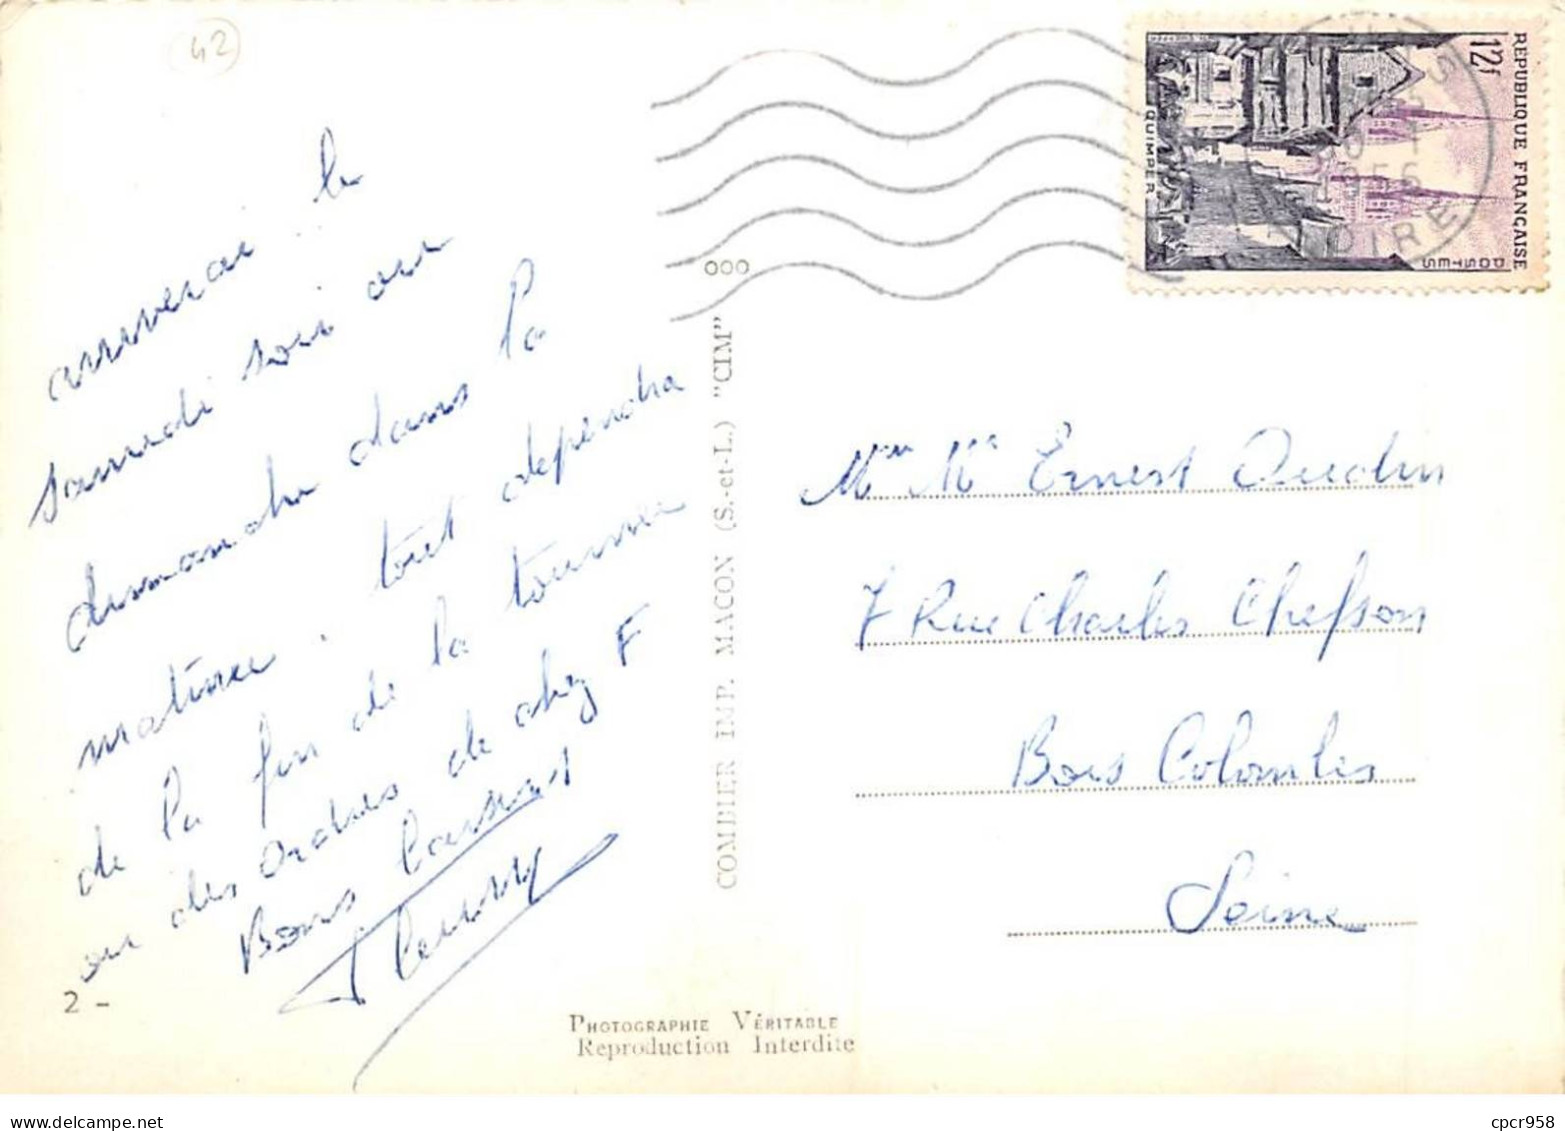 42
arriverai le
samedi soir ou
dimanche dans la
matinée. tout dependra
de la fin de la tournee
ou des ordres de chez F
Bons baisers
2 -
000
COMBIER IMP. MACON (S.-et-L.) "CIM"
PHOTOGRAPHIE VÉRITABLE
Reproduction Interdite
RÉPUBLIQUE FRANÇAISE
12f
POSTES
QUIMPER
1956
LOIRE
Mme Mr Ernest Oudin
7 Rue Charles Chefson
Bois Colombes
Seine
cpcr958